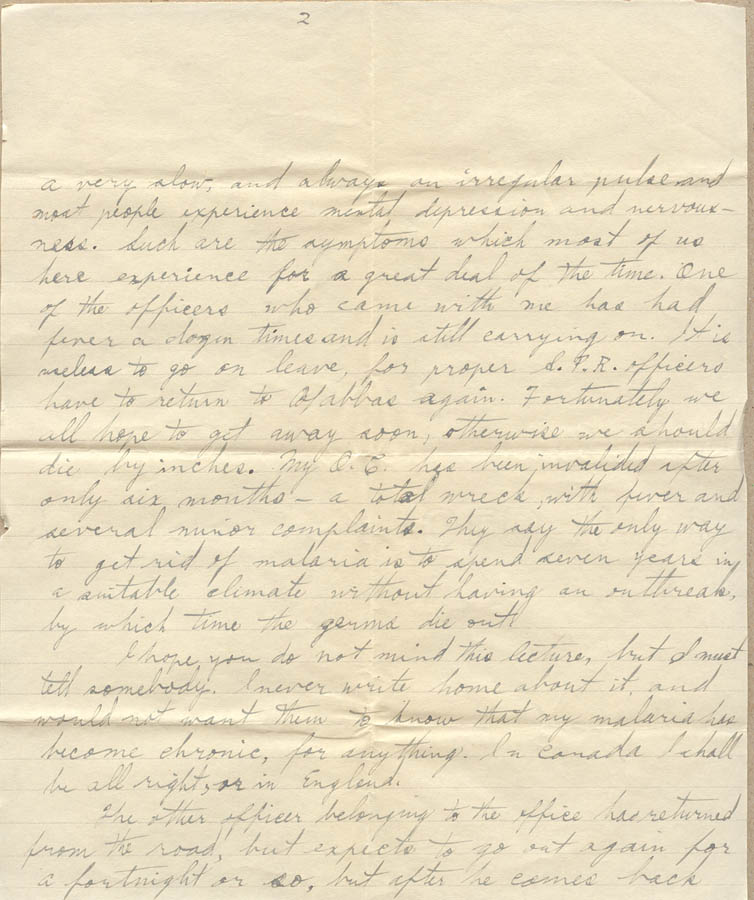 2
a very slow, and always an irregular pulse and
most people experience mental depression and nervous-
ness. Such are the symptoms which most of us
here experience for a great deal of the time. One
of the officers who came with me has had
fever a dozen times and is still carrying on. It is
useless to go on leave, for proper S.P.R. officers
have to return to again. Fortunately we
all hope to get away soon, otherwise we should
die by inches. My O.C. has been invalided after
only six months - a total wreck with fever and
several minor complaints. They say the only way
to get rid of malaria is to spend seven years in
a suitable climate without having an outbreak,
by which time the germs die out.
I hope you do not mind this lecture, but I must
tell somebody. I never write home about it, and
would not want them to know that my malaria has
become chronic, for anything. In Canada I shall
be all right, or in England.
The other officer belonging to the office has returned
from the road, but expects to go out again for
a fortnight or so, but after he comes back